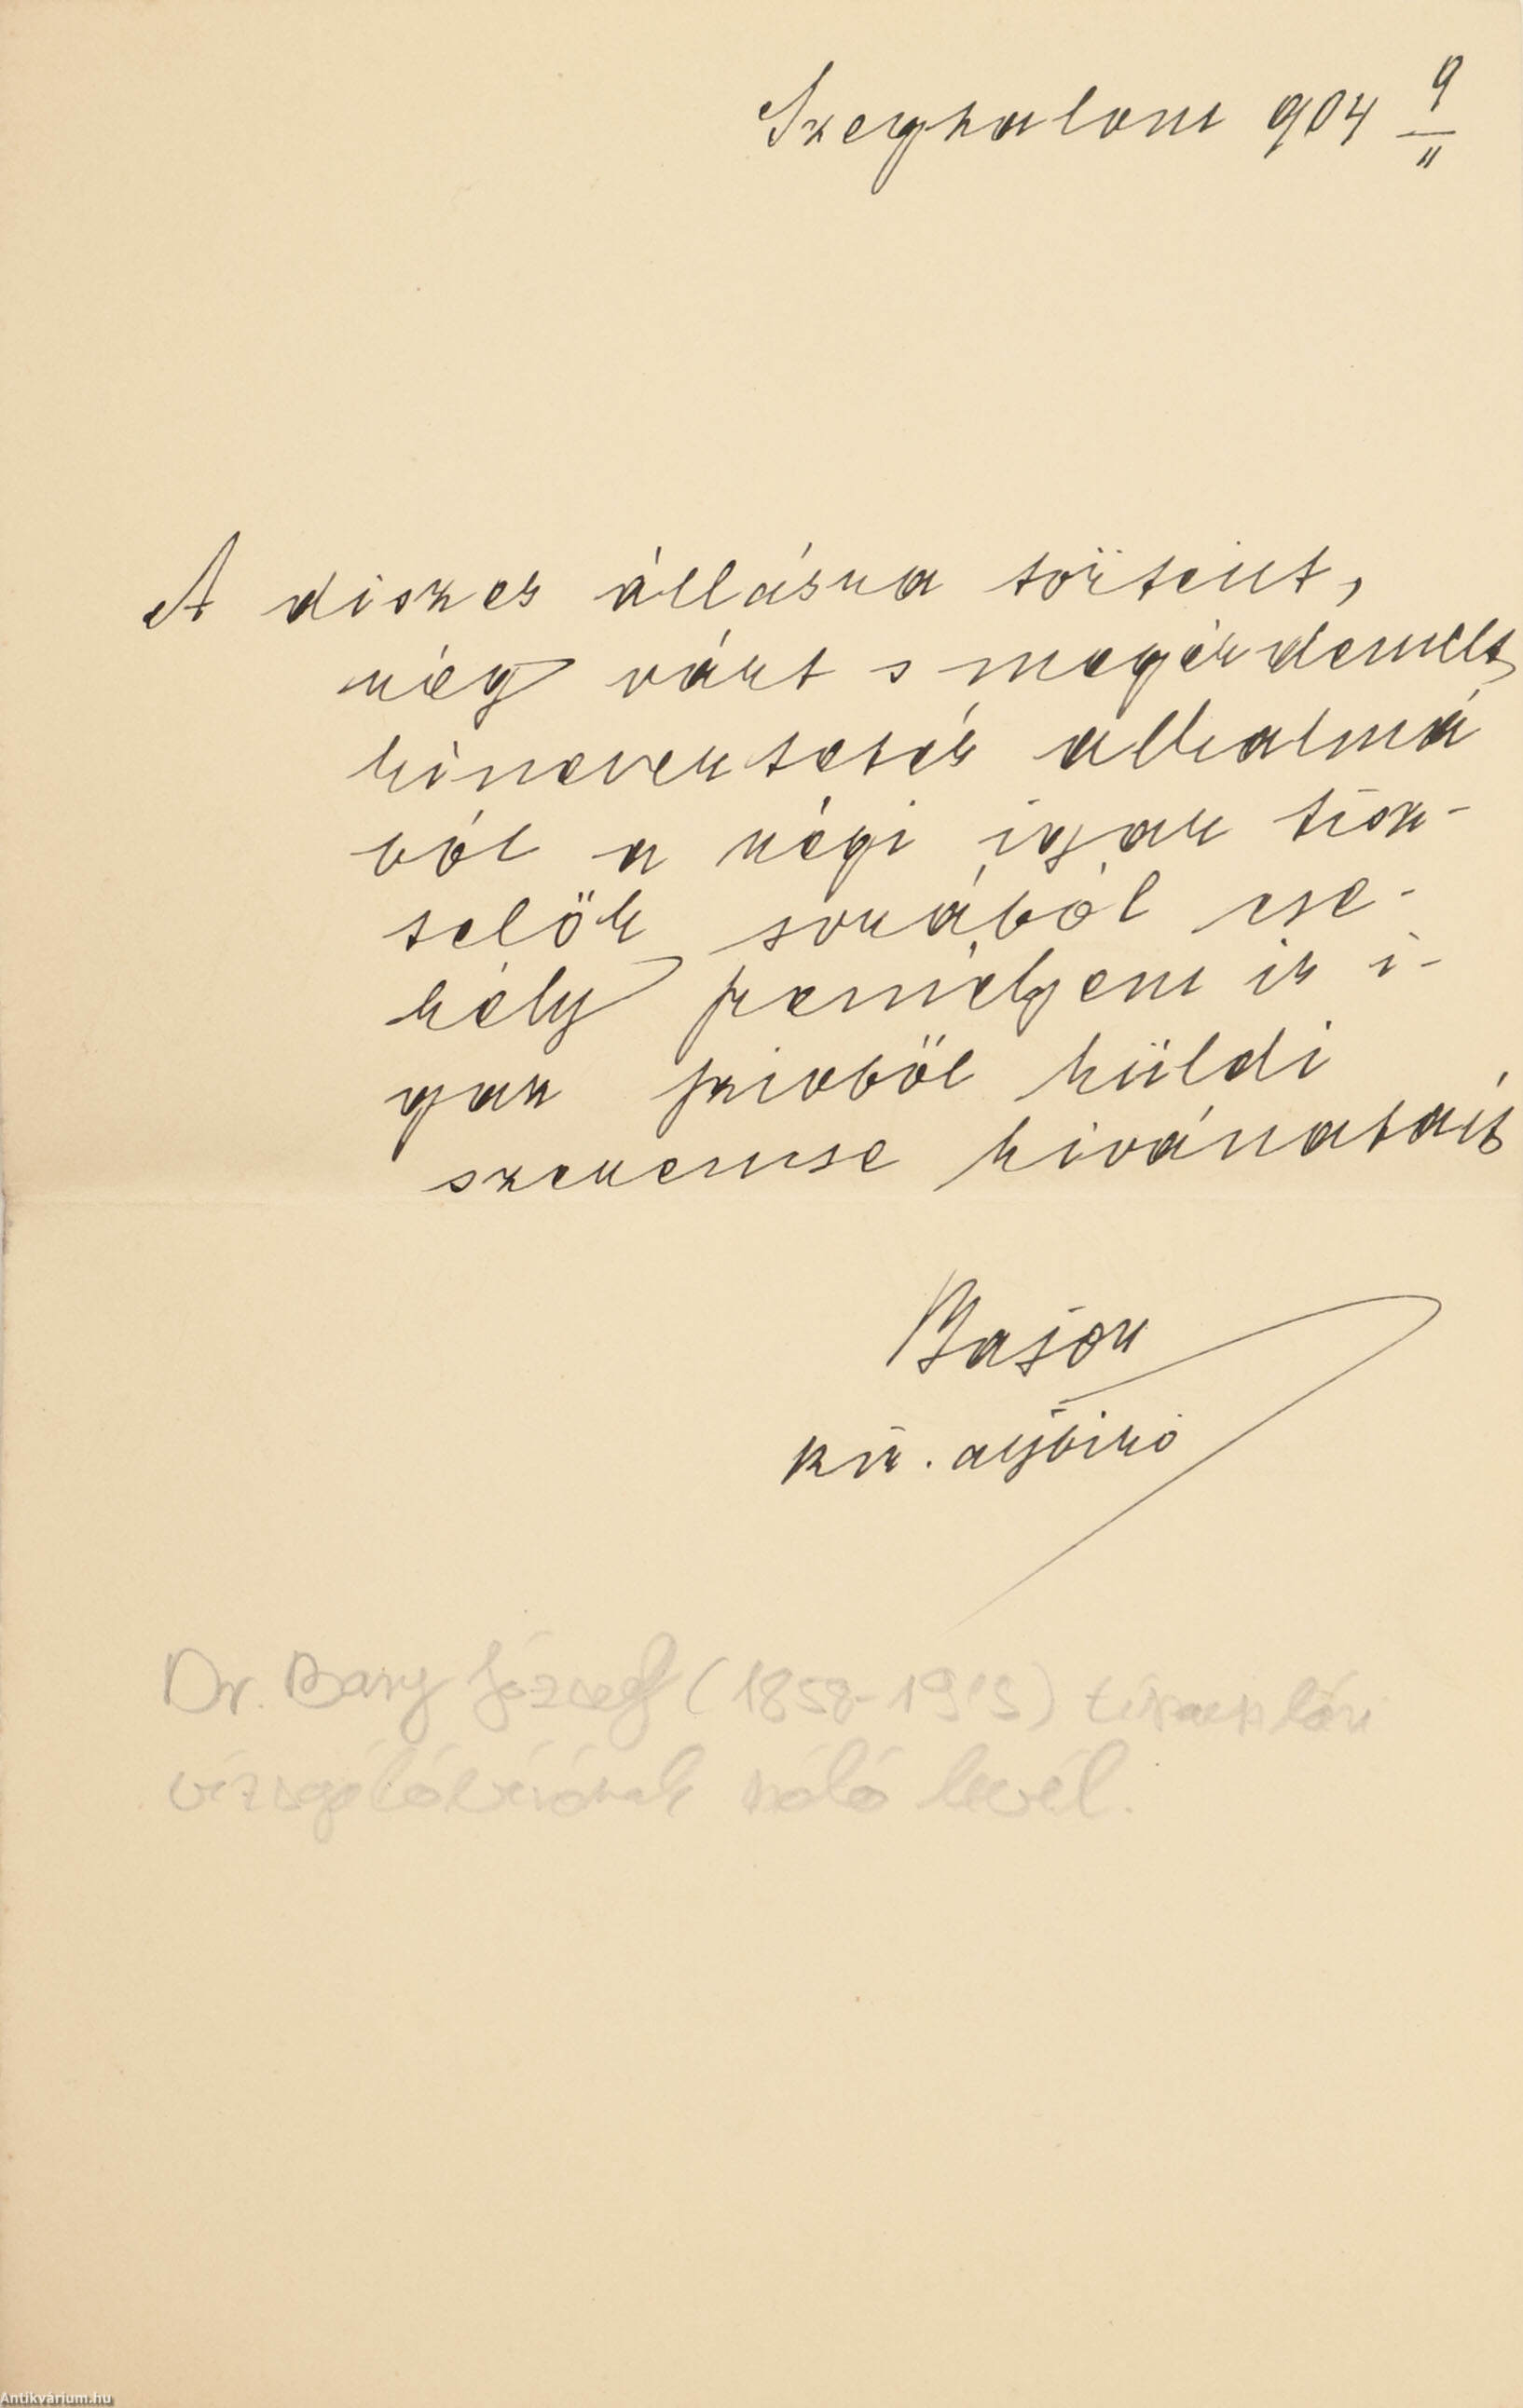 Szeghalom 904 9/II
A diszes állásra történt,
rég várt s megérdemelt
kineveztetés alkalmá
ból a régi igaz tisz-
telők sorából cse-
kély személyem is i-
gaz szivből küldi
szerencse kivánatait
Bajor
kir. aljbiró
Dr. Bary József (1858-1915) tiszaeszlári
vizsgálóbírónak szóló levél.
Antikvárium.hu